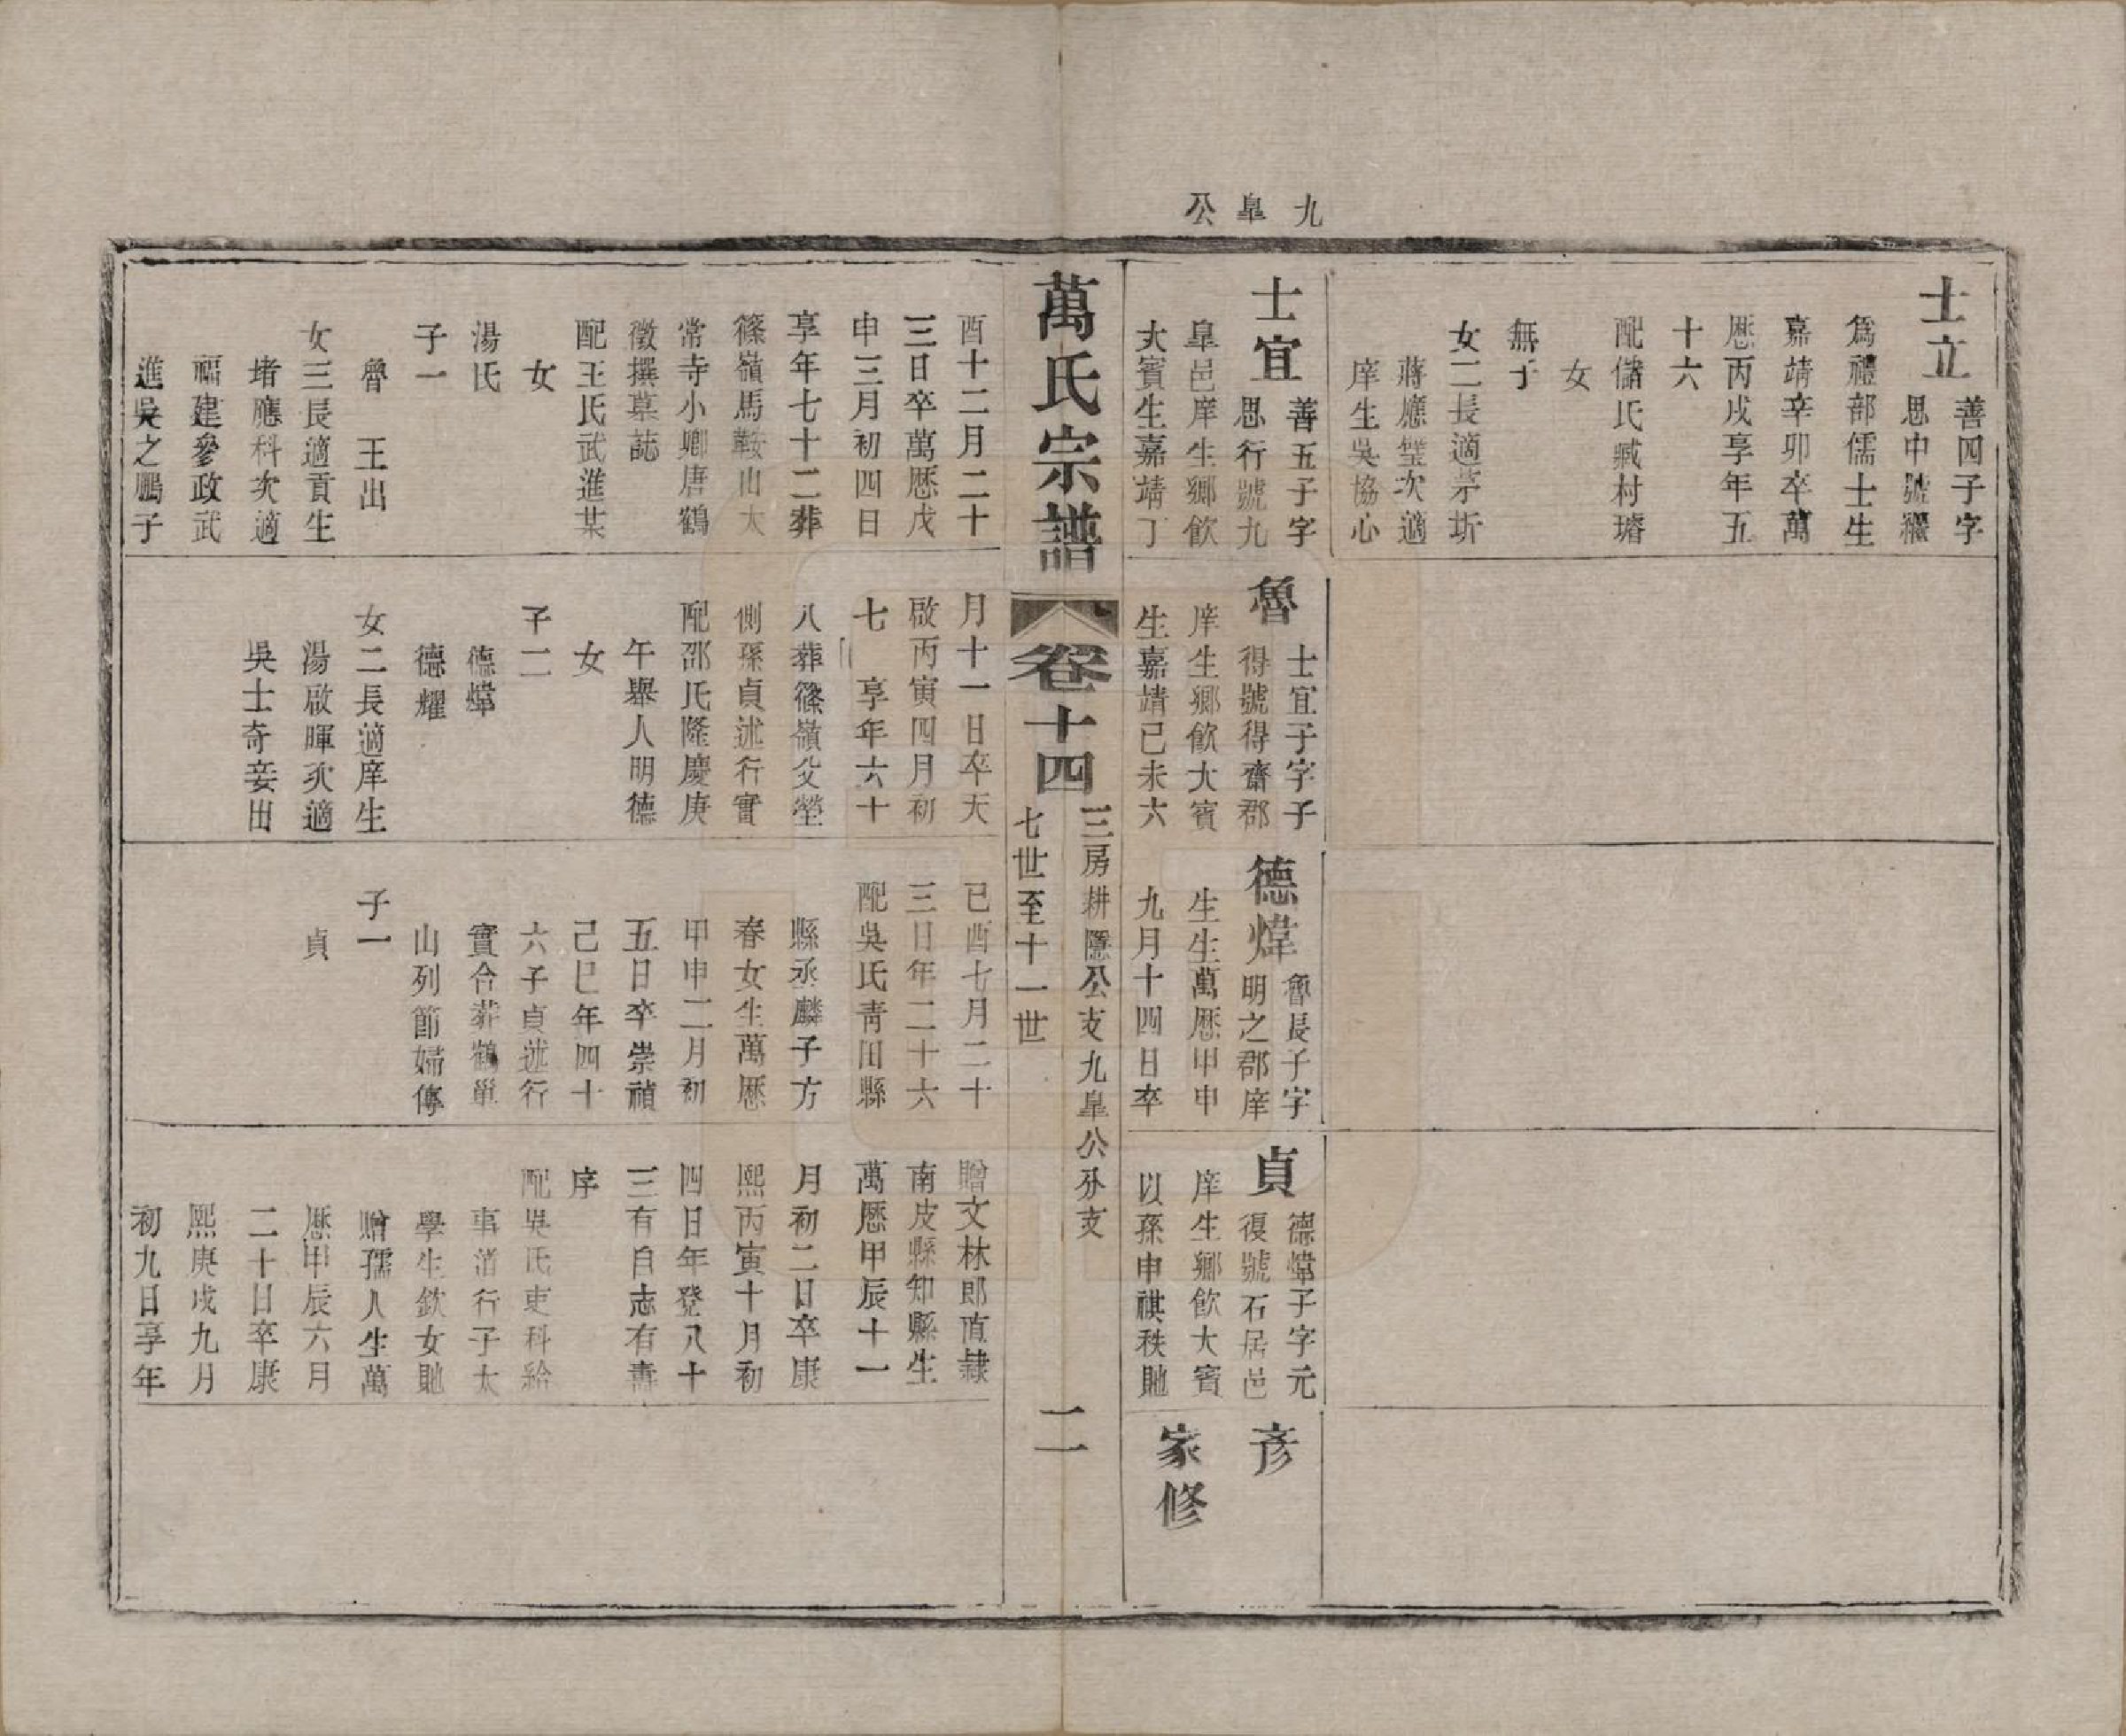 九皐公
士立
善四子字
思中號繼
爲禮部儒士生
嘉靖辛卯卒萬
厯丙戌享年五
十六
配儲氏臧村璿
女
無子
女二長適茅圻
蔣應瑩次適
庠生吳協心
士宜
善五子字
思行號九
皐邑庠生鄉飲
大賓生嘉靖丁
酉十二月二十
三日卒萬厯戊
申三月初四日
享年七十二葬
篠嶺馬鞍山太
常寺小卿唐鶴
徵撰墓誌
配王氏武進某
女
湯氏
子一
魯 王出
女三長適貢生
堵應科次適
福建參政武
進吳之鵬子
魯
士宜子字子
得號得齋郡
庠生鄉飲大賓
生嘉靖已未六
月十一日卒天
啟丙寅四月初
七 享年六十
八葬篠嶺父塋
側孫貞述行實
配邵氏隆慶庚
午舉人明德
女
子二
德煒
德耀
女二長適庠生
湯啟暉次適
吳士奇妾出
德煒
魯長子字
明之郡庠
生生萬厯甲申
九月十四日卒
已酉七月二十
三日年二十六
配吳氏青田縣
縣丞麟子方
春女生萬厯
甲申二月初
五日卒崇禎
己巳年四十
六子貞述行
實合葬鶴巢
山列節婦傳
子一
貞
貞
德煒子字元
復號石居邑
庠生鄉飲大賓
以孫申祺秩貤
贈文林郎直隸
南皮縣知縣生
萬厯甲辰十一
月初二日卒康
熙丙寅十月初
四日年登八十
三有自志有壽
序
配吳氏吏科給
事湝行子太
學生欽女貤
贈孺人生萬
厯甲辰六月
二十日卒康
熙庚戌九月
初九日享年
彥
家修
萬氏宗譜
卷十四
三房耕隱公支九皐公分支
七世至十一世
二